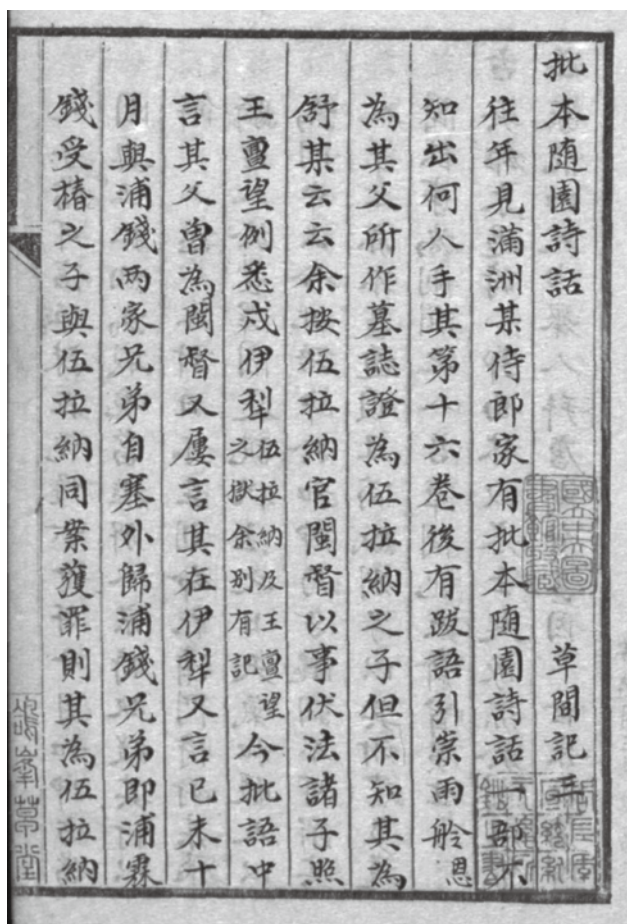 批本隨園詩話　草間記三
往年見滿洲某侍郎家有批本隨園詩話一部不
知出何人手其第十六卷後有跋語引崇雨舲恩
為其父所作墓誌證為伍拉納之子但不知其為
舒某云云余按伍拉納官閩督以事伏法諸子照
王亶望例悉戍伊犁伍拉納及王亶望之獄余別有記今批語中
言其父曾為閩督又屢言其在伊犁又言已未十
月與浦錢兩家兄弟自塞外歸浦錢兄弟即浦霖
錢受椿之子與伍拉納同案獲罪則其為伍拉納